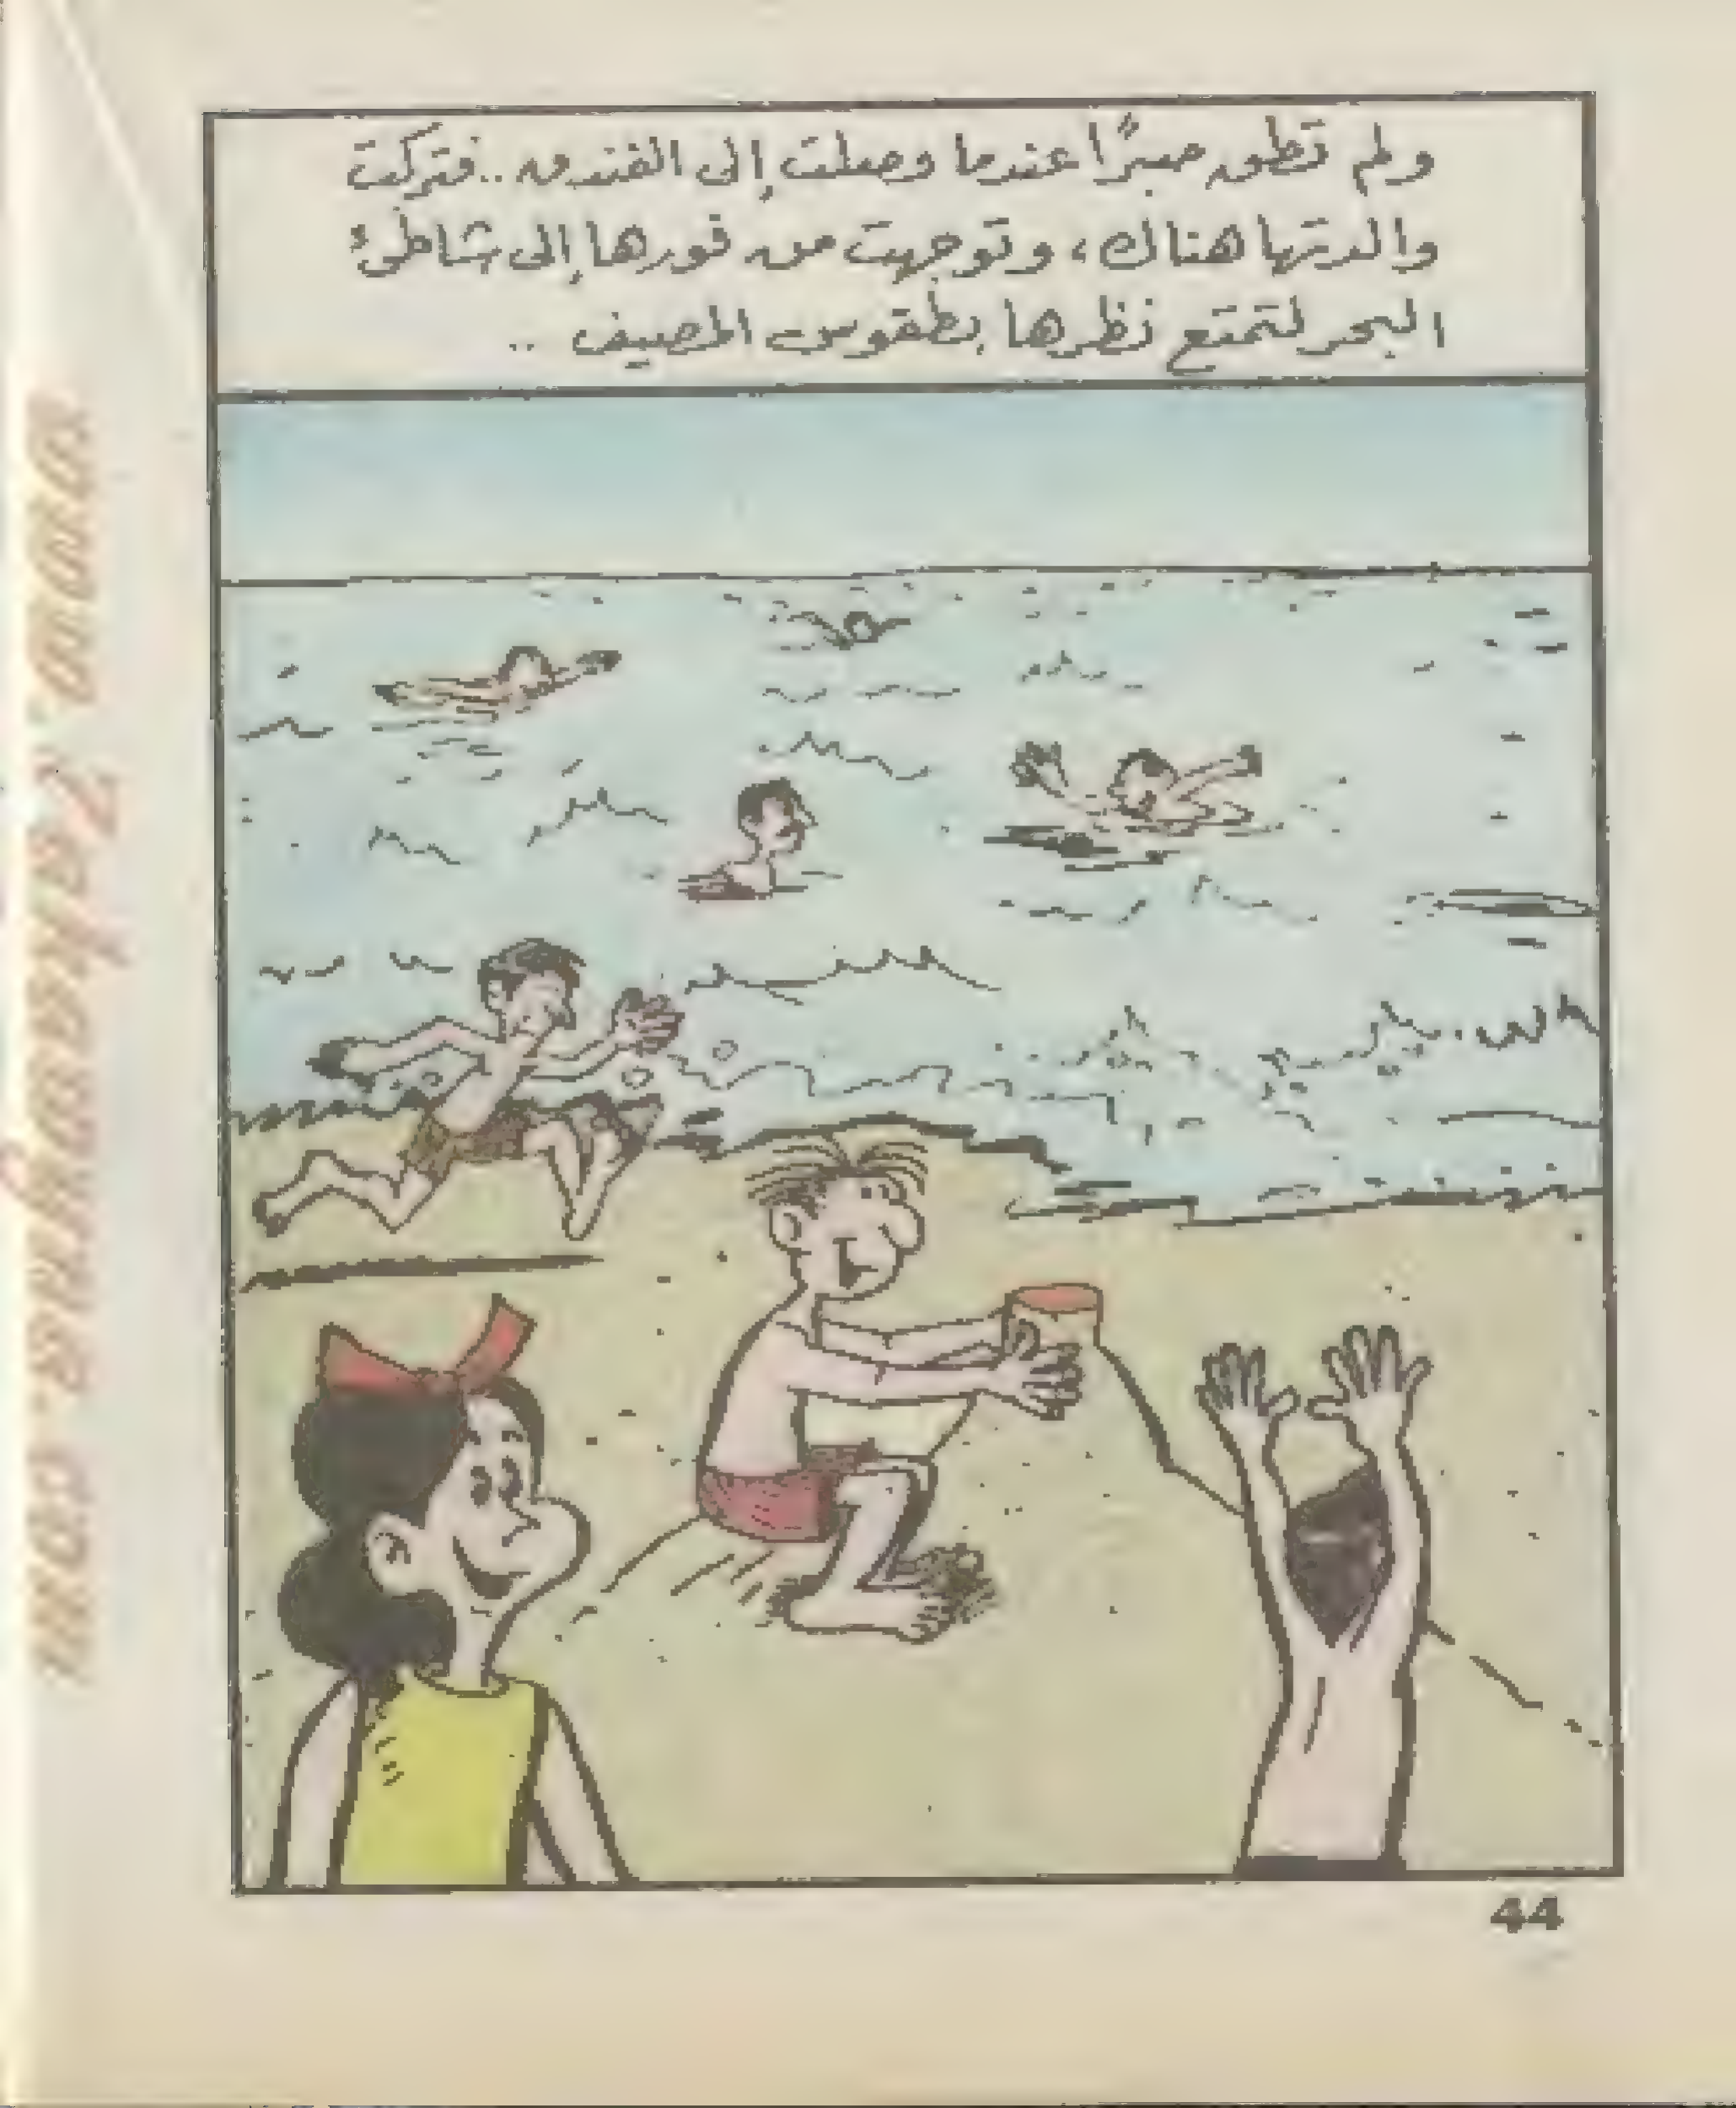 ولم تطق صبرًا عندما وصلت إلى الفندق .. فتركت
والدتها هناك، وتوجهت من فورها إلى شاطئ
البحر لتمتع نظرها بطقوس المصيف ..
44